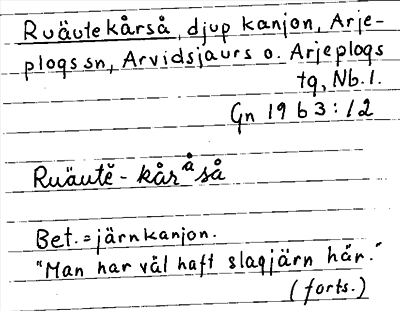 Ruäutekårså, djup kanjon, Arje-
plogs sn, Arvidsjaurs o. Arjeplogs
tg, Nb. l.
Gn 1963:12
Ruäutĕ - kåråså
Bet. = järnkanjon.
"Man har väl haft slagjärn här."
(forts.)